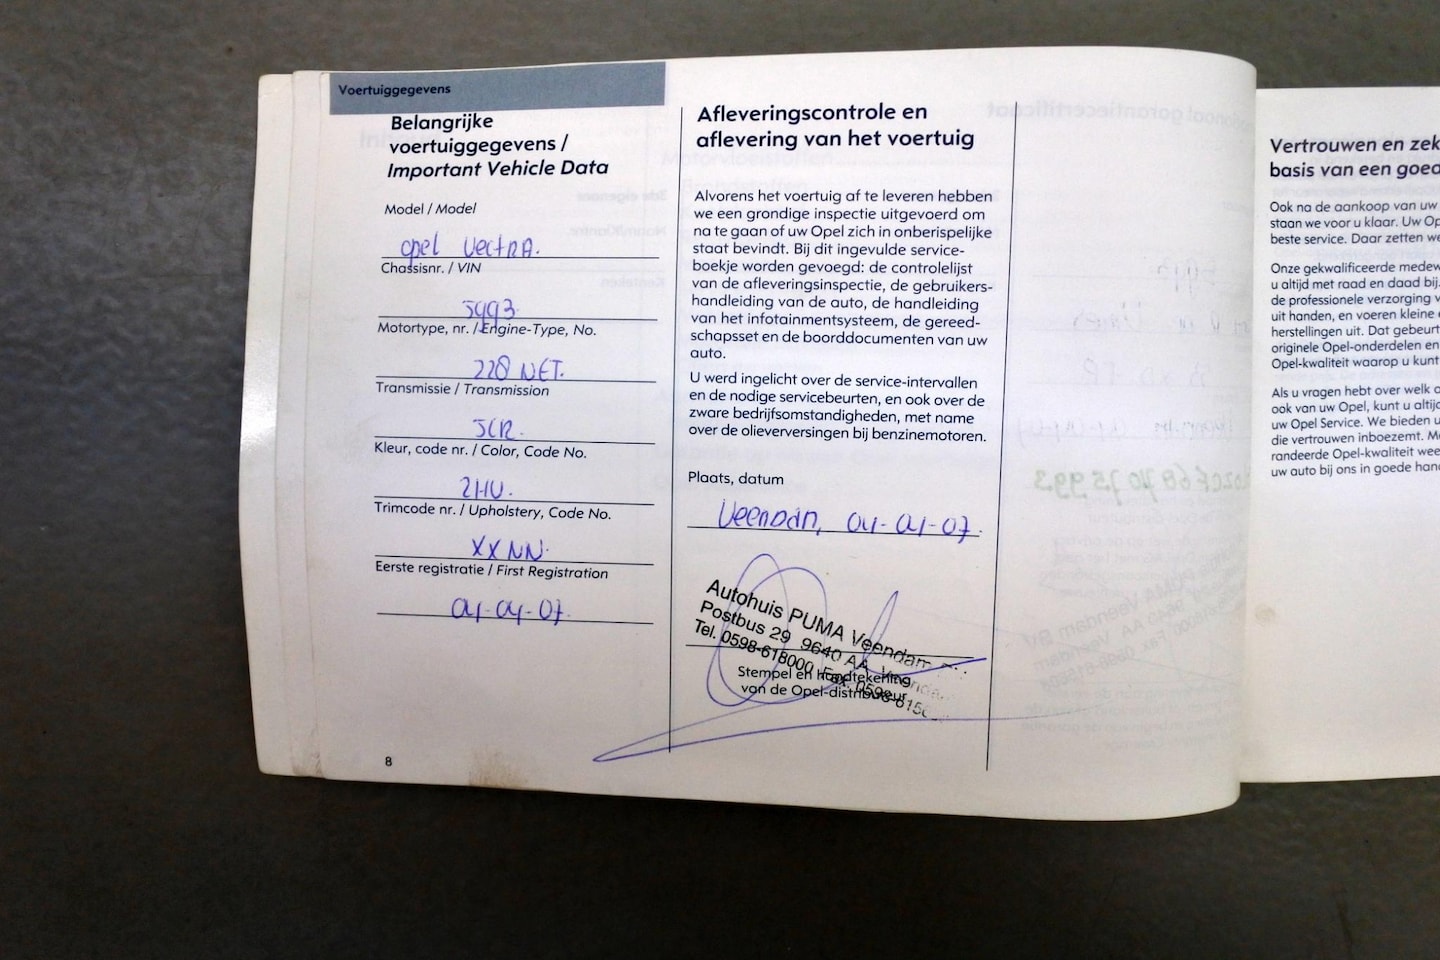 Voertuiggegevens
Belangrijke
voertuiggegevens /
Important Vehicle Data
Model / Model
Opel VectRA.
Chassisnr. / VIN
5993
Motortype, nr. / Engine-Type, No.
228 NET.
Transmissie / Transmission
5CR.
Kleur, code nr. / Color, Code No.
2HU.
Trimcode nr. / Upholstery, Code No.
XXNN.
Eerste registratie / First Registration
04-04-07.
8
Afleveringscontrole en
aflevering van het voertuig
Alvorens het voertuig af te leveren hebben
we een grondige inspectie uitgevoerd om
na te gaan of uw Opel zich in onberispelijke
staat bevindt. Bij dit ingevulde service-
boekje worden gevoegd: de controlelijst
van de afleveringsinspectie, de gebruikers-
handleiding van de auto, de handleiding
van het infotainmentsysteem, de gereed-
schapsset en de boorddocumenten van uw
auto.
U werd ingelicht over de service-intervallen
en de nodige servicebeurten, en ook over de
zware bedrijfsomstandigheden, met name
over de olieverversingen bij benzinemotoren.
Plaats, datum
Veendan, 04-04-07.
Autohuis PUMA Veendam
Postbus 29 9640 AA Veenda
Tel. 0598-618000 Fax 0598-615
Stempel en handtekening
van de Opel-distributeur
Vertrouwen en zek
basis van een goed
Ook na de aankoop van uw
staan we voor u klaar. Uw Op
beste service. Daar zetten we
Onze gekwalificeerde medew
u altijd met raad en daad bij.
de professionele verzorging v
uit handen, en voeren kleine e
herstellingen uit. Dat gebeurt
originele Opel-onderdelen en
Opel-kwaliteit waarop u kunt
Als u vragen hebt over welk o
ook van uw Opel, kunt u altijd
uw Opel Service. We bieden u
die vertrouwen inboezemt. M
randeerde Opel-kwaliteit wee
uw auto bij ons in goede han